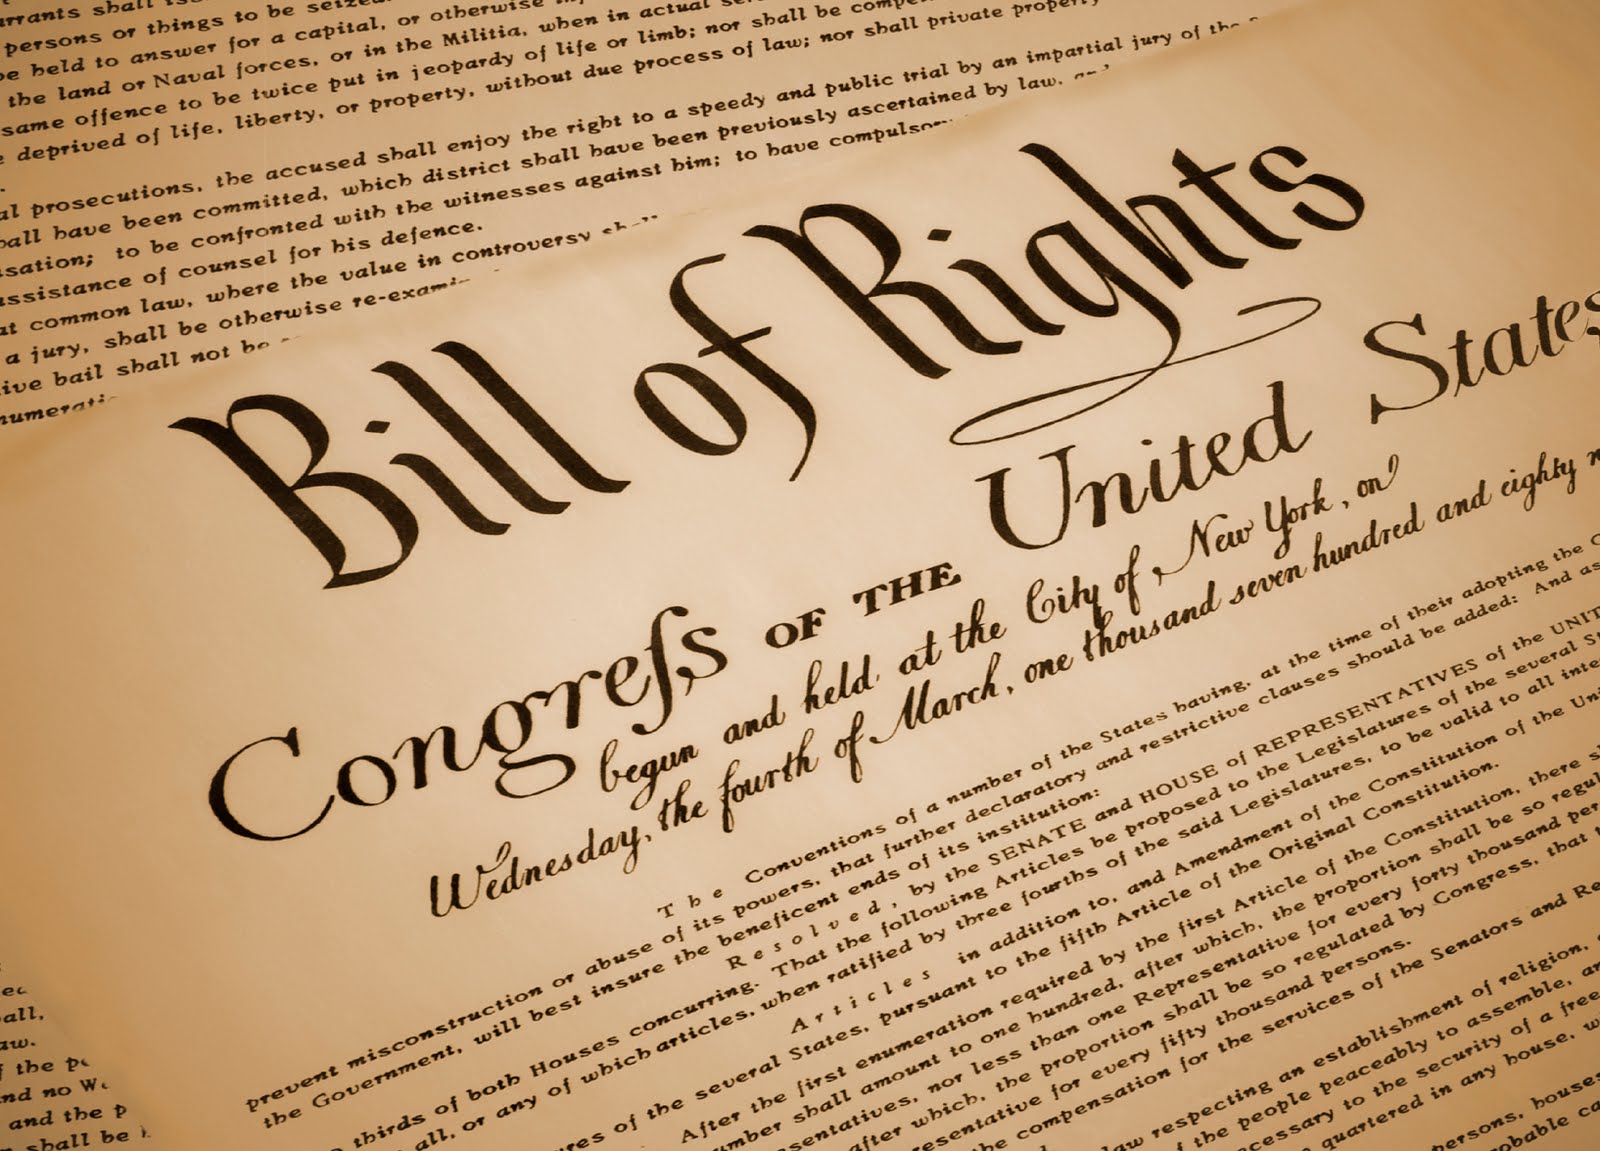 rrants shall iss
persons or things to be seized.
be held to answer for a capital, or otherwise
the land or Naval forces, or in the Militia, when in actual
same offence to be twice put in jeopardy of life or limb; nor shall be compe
e deprived of life, liberty, or property, without due process of law; nor shall private property
al prosecutions, the accused shall enjoy the right to a speedy and public trial by an impartial jury of the
hall have been committed, which district shall have been previously ascertained by law, and
sation; to be confronted with the witnesses against him; to have compulsory
assistance of counsel for his defence.
at common law, where the value in controversy shall
a jury, shall be otherwise re-exami
ive bail shall not be
numerati
Bill of Rights
Congreſs OF THE United States
begun and held at the City of New York, on
Wednesday, the fourth of March, one thousand seven hundred and eighty n
The Conventions of a number of the States having, at the time of their adopting the C
prevent misconstruction or abuse of its powers, that further declaratory and restrictive clauses should be added: And as
the Government, will best insure the beneficent ends of its institution:
Resolved, by the SENATE and HOUSE of REPRESENTATIVES of the UNIT
thirds of both Houses concurring. That the following Articles be proposed to the Legislatures of the several St
all, or any of which articles, when ratified by three fourths of the said Legislatures, to be valid to all inte
Articles in addition to, and Amendment of the Constitution of the Uni
ures of the several States, pursuant to the fifth Article of the Original Constitution.
After the first enumeration required by the first Article of the Constitution, there s
umber shall amount to one hundred, after which, the proportion shall be so regul
sentatives, nor less than one Representative for every forty thousand per
after which, the proportion shall be so regulated by Congress, that t
resentative for every fifty thousand persons.
the compensation for the services of the Senators and Re
law respecting an establishment of religion,
of the people peaceably to assemble, an
ecessary to the security of a free
quartered in any house, wi
persons, houses
robable ca
all,
aw.
f the pe
nd no Wa
and the p
shall be